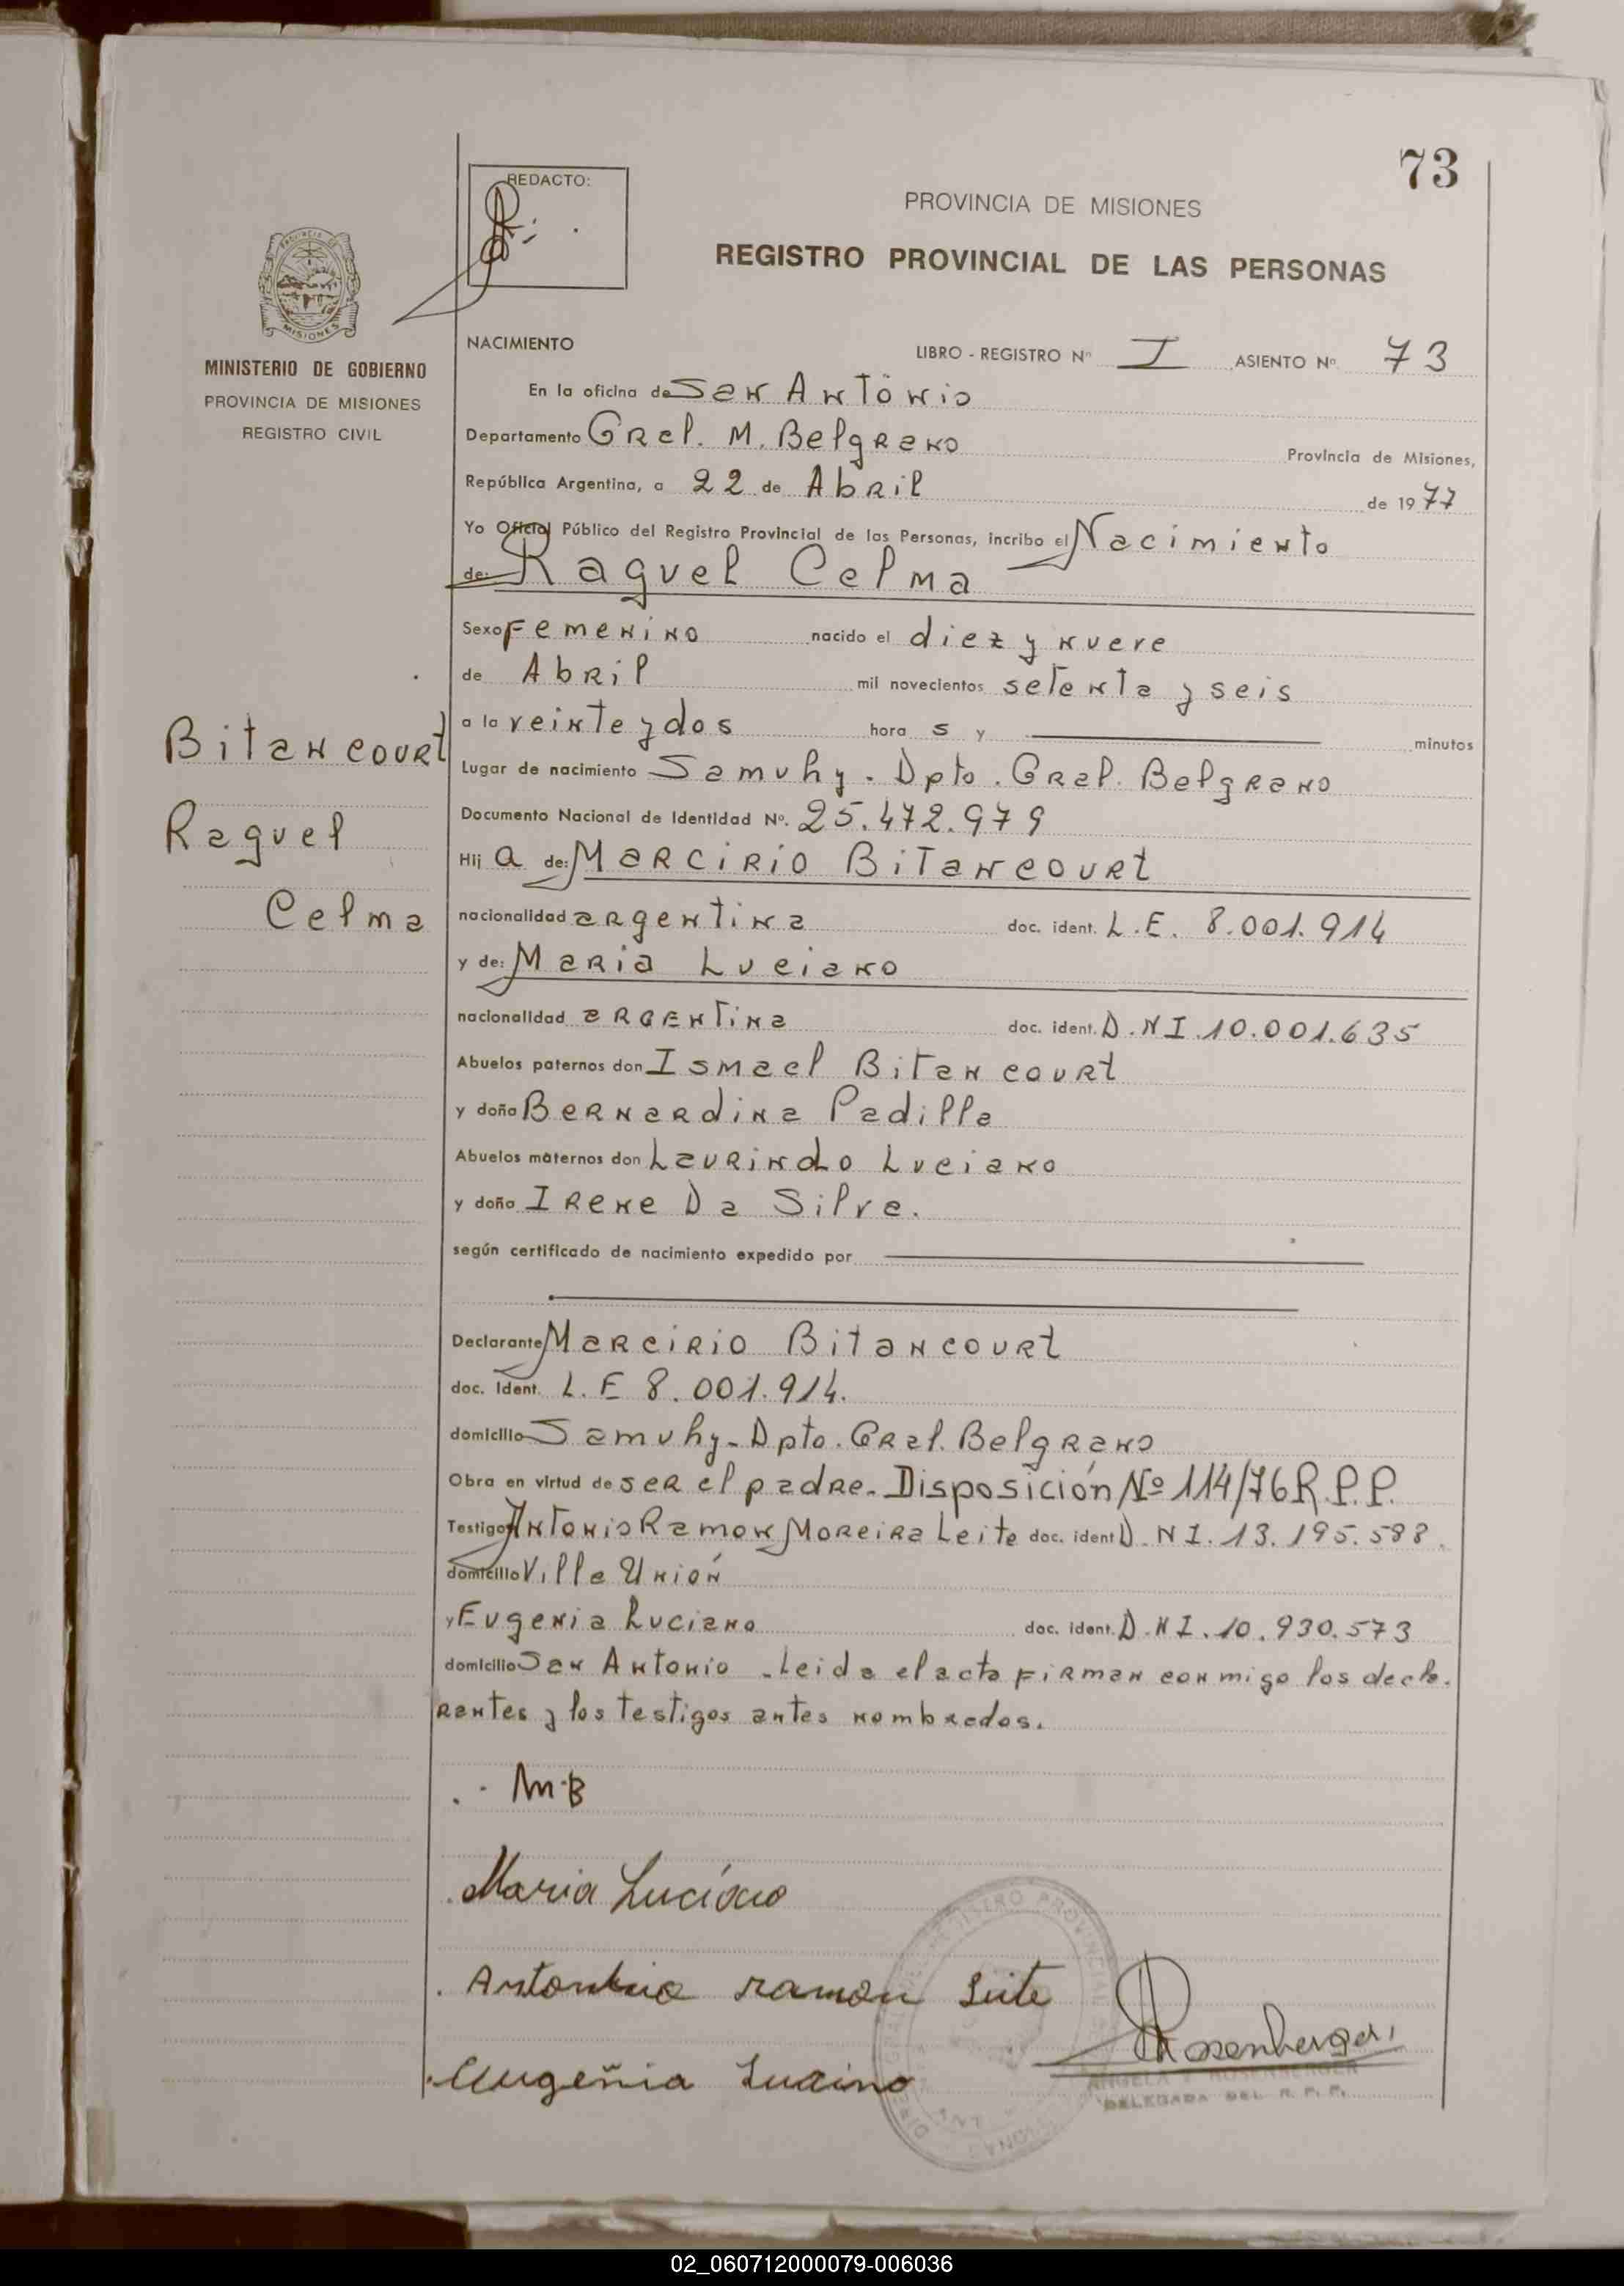 73
REDACTO:
PROVINCIA DE MISIONES
REGISTRO PROVINCIAL DE LAS PERSONAS
MISIONES
MINISTERIO DE GOBIERNO
PROVINCIA DE MISIONES
REGISTRO CIVIL
NACIMIENTO
LIBRO - REGISTRO Nº I ASIENTO Nº 73
En la oficina de San Antonio
Departamento Gral. M. Belgrano Provincia de Misiones,
República Argentina, a 22 de Abril de 1977
Yo Oficial Público del Registro Provincial de las Personas, incribo el Nacimiento
de: Raquel Celma
Sexo Femenino nacido el diez y nueve
de Abril mil novecientos setenta y seis
a la veinte y dos hora s y minutos
Lugar de nacimiento Samuhy. Dpto. Gral. Belgrano
Documento Nacional de Identidad Nº. 25.472.979
Bitancourt
Raquel
Celma
Hij a de: Marcirio Bitancourt
nacionalidad argentina doc. ident. L.E. 8.001.914
y de: Maria Luciano
nacionalidad argentina doc. ident. D.N I. 10.001.635
Abuelos paternos don Ismael Bitancourt
y doña Bernardina Padilla
Abuelos maternos don Laurindo Luciano
y doña Irene Da Silva.
según certificado de nacimiento expedido por
Declarante Marcirio Bitancourt
doc. Ident. L. E 8.001.914.
domicilio Samuhy - Dpto. Gral. Belgrano
Obra en virtud de ser el padre. Disposición Nº 114/76 R.P.P.
Testigos Antonio Ramon Moreira Leite doc. ident D. N I. 13.195.588.
domicilio Villa Unión
y Eugenia Luciano doc. ident. D. N I. 10.930.573
domicilio San Antonio - Leida el acta firman conmigo los decla-
rantes y los testigos antes nombrados.
M.B
Maria Luciano
ramon Leite
Eugeñia
Rosenberger
ANGELA ROSENBERGER
DELEGADA DEL R. P. P.
02_060712000079-006036